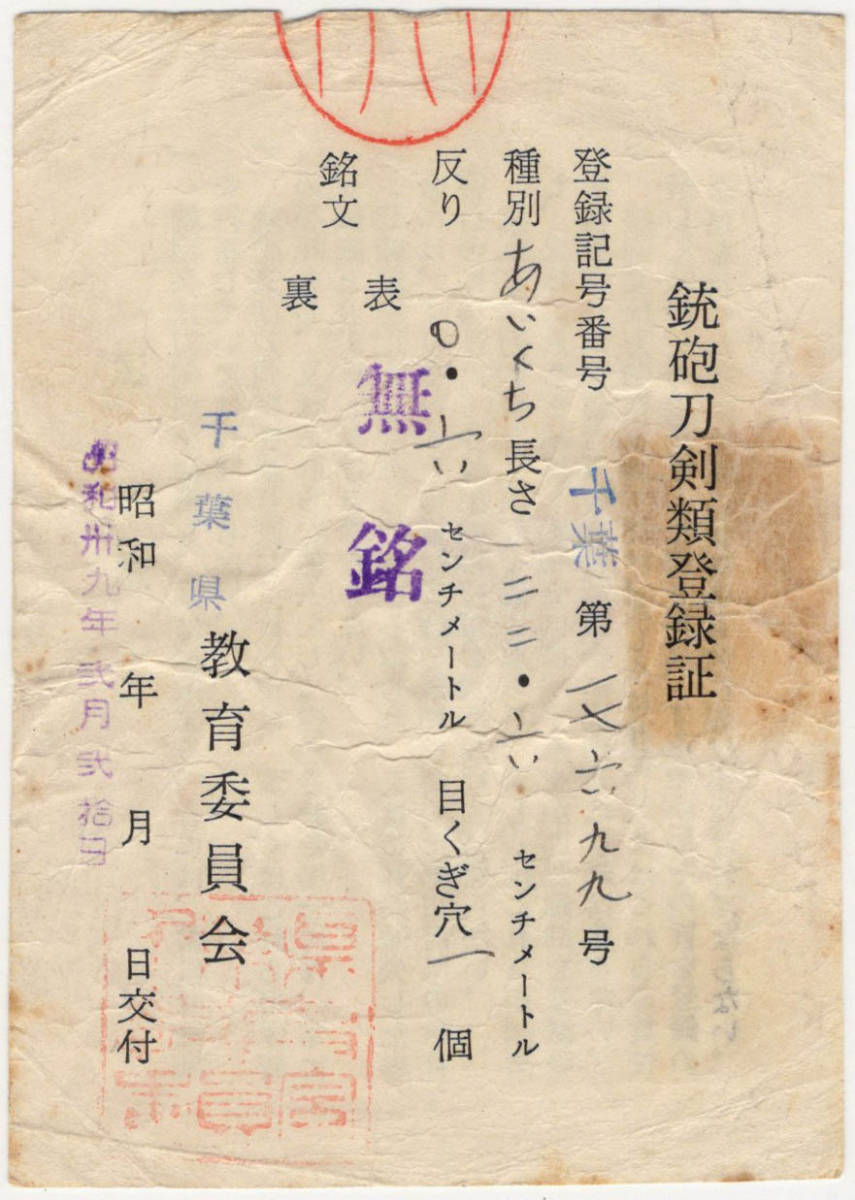 銃砲刀剣類登録証
登録記号番号 千葉 第一七六九九号
種別 あいくち 長さ 二二・六 センチメートル
反り 〇・六 センチメートル 目くぎ穴 一 個
銘文 表 無銘
裏
千葉県教育委員会
昭和 年 月 日交付
昭和卅九年弐月弐拾日